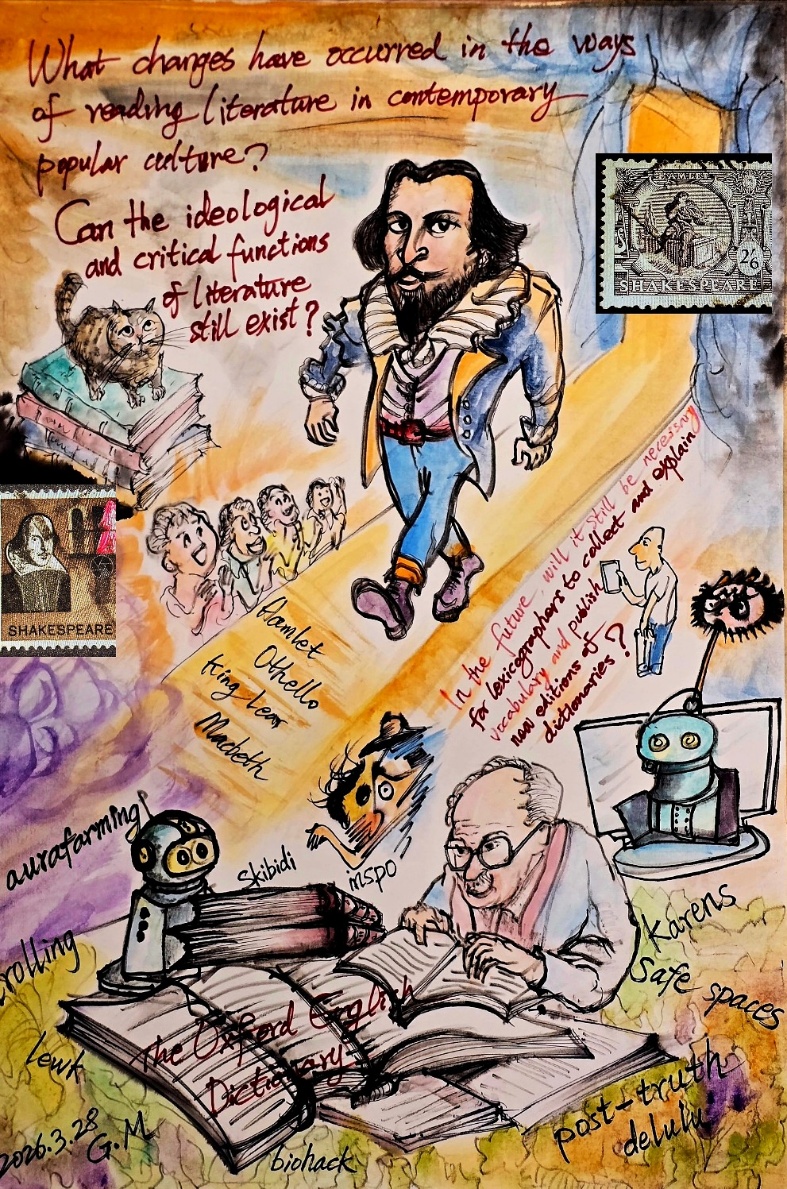 What changes have occurred in the ways
of reading literature in contemporary
popular culture?
Can the ideological
and critical functions
of literature
still exist?
HAMLET
2/6
SHAKESPEARE
SHAKESPEARE
Hamlet
Othello
King Lear
Macbeth
In the future, will it still be necessary
for lexicographers to collect and explain
vocabulary and publish
new editions of
dictionaries?
aurafarming
Skibidi
mspo
rolling
Karens
Safe spaces
The Oxford English
Dictionary
lewk
post-truth
delulu
2026.3.28
G.M
biohack